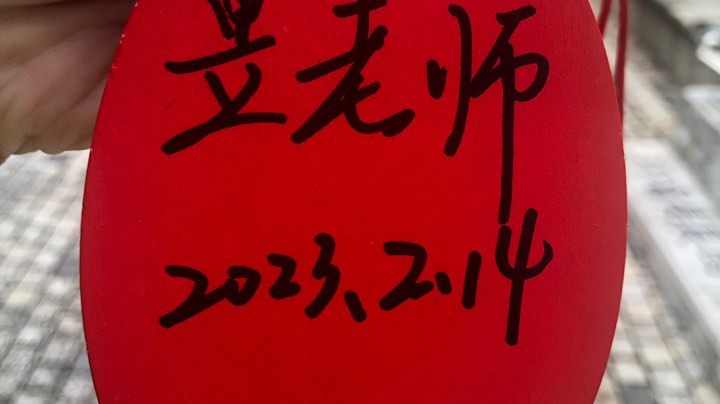 昱老师
2023、2.14